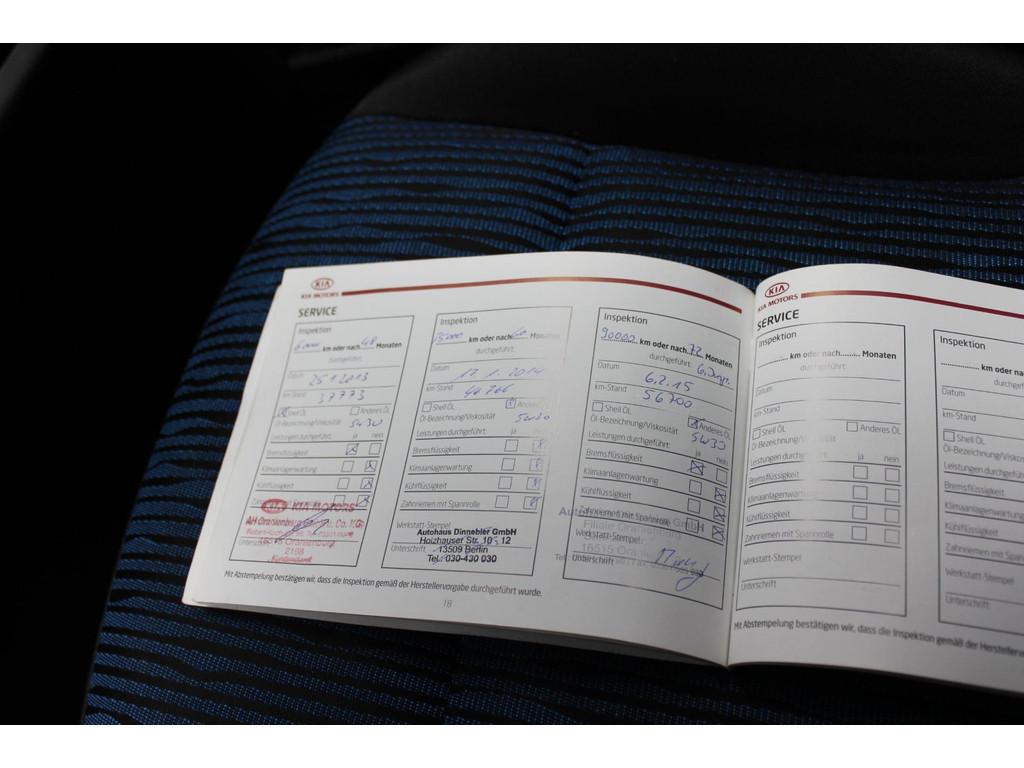 KIA
KIA MOTORS
SERVICE
Inspektion
km oder nach 48 Monaten
durchgeführt:
Datum 25 1 2013
km-Stand 37773
Shell ÖL Anderes ÖL
Öl-Bezeichnung/Viskosität 5W30
Leistungen durchgeführt: ja nein
Bremsflüssigkeit
Klimaanlagenwartung
Kühlflüssigkeit
KIA MOTORS
Unterschrift
Inspektion
km oder nach 60 Monaten
durchgeführt:
Datum 17. 1. 2014
km-Stand
Shell ÖL Anderes
Öl-Bezeichnung/Viskosität 5W30
Leistungen durchgeführt: ja nein
Bremsflüssigkeit
Klimaanlagenwartung
Kühlflüssigkeit
Zahnriemen mit Spannrolle
Werkstatt-Stempel
Autohaus Dinnebier GmbH
Holzhauser Str. 10 - 12
Unterschrift 13509 Berlin
Tel.: 030-430 030
Inspektion
90000 km oder nach 72 Monaten
durchgeführt: 6. Insp.
Datum 6.2.15
km-Stand 56700
Shell ÖL Anderes ÖL
Öl-Bezeichnung/Viskosität 5W30
Leistungen durchgeführt: ja nein
Bremsflüssigkeit
Klimaanlagenwartung
Kühlflüssigkeit
Zahnriemen mit Spannrolle
Werkstatt-Stempel
16515
Unterschrift
Mit Abstempelung bestätigen wir, dass die Inspektion gemäß der Herstellervorgabe durchgeführt wurde.
18
KIA
KIA MOTORS
SERVICE
Inspektion
km oder nach Monaten
durchgeführt:
Datum
km-Stand
Shell ÖL Anderes ÖL
Öl-Bezeichnung/Viskosität
Leistungen durchgeführt: ja nein
Bremsflüssigkeit
Klimaanlagenwartung
Kühlflüssigkeit
Zahnriemen mit Spannrolle
Werkstatt-Stempel
Unterschrift
Inspektion
km oder na
Datum
km-Stand
Shell ÖL
Öl-Bezeichnung/Viskos
Leistungen durchgeführ
Bremsflüssigkeit
Klimaanlagenwartung
Kühlflüssigkeit
Zahnriemen mit Spannro
Werkstatt-Stempel
Unterschrift
Mit Abstempelung bestätigen wir, dass die Inspektion gemäß der Herstellervo